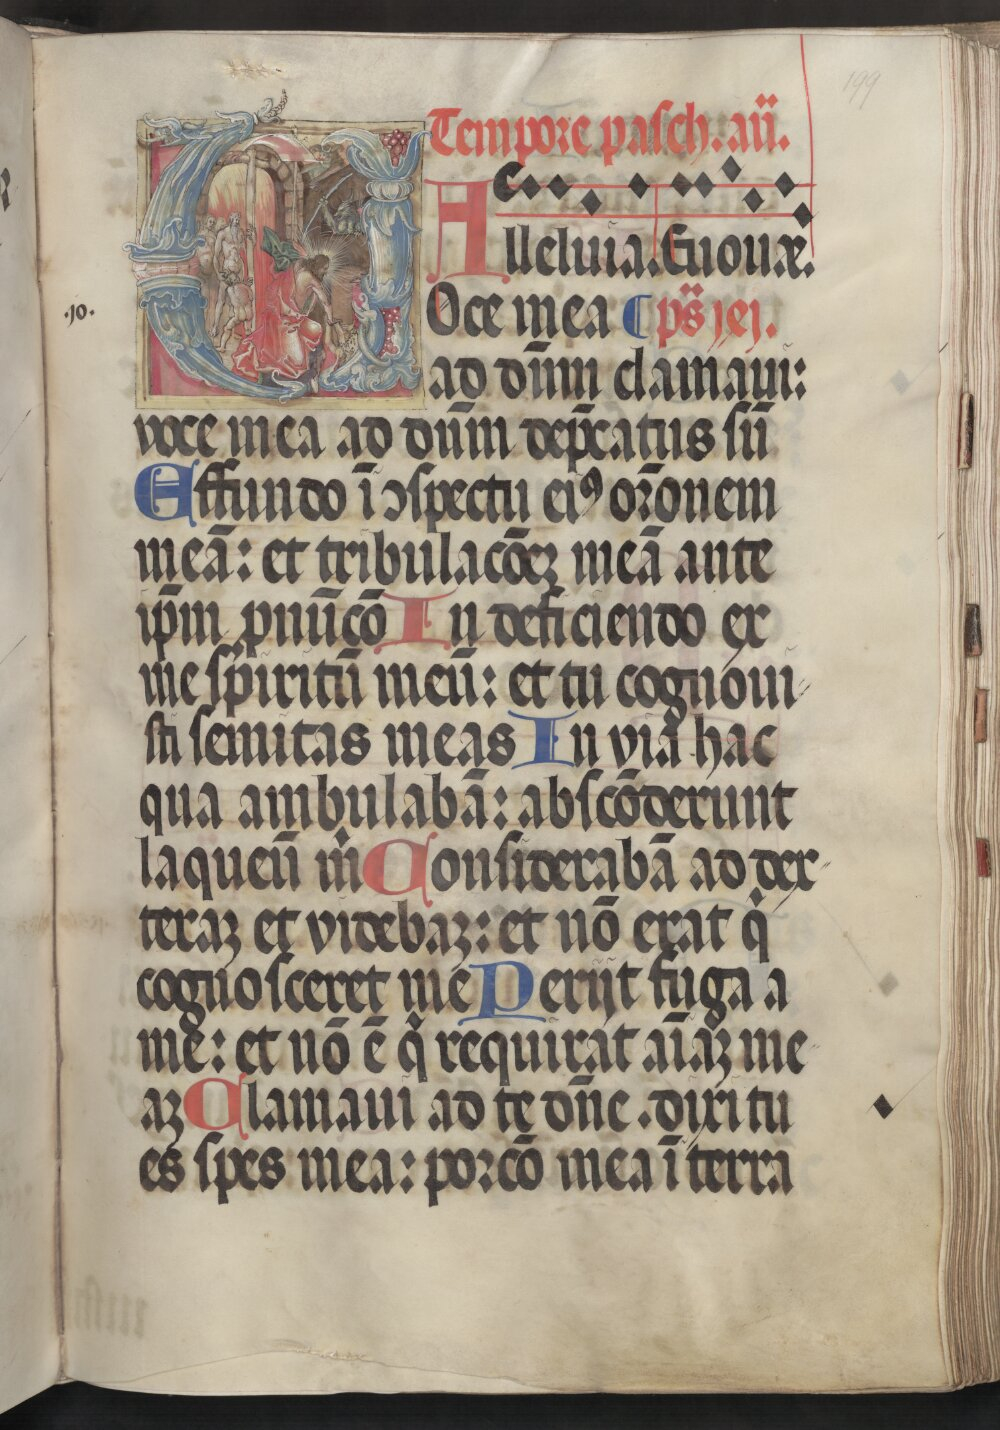 199
Tempore pasch. añ.
Alleluia. Euouæ.
.10.
VOce mea ps̄ jej.
ad dn̄m clamaui:
voce mea ad dn̄m dep̄catus sū
Effundo ī ɔspectu eiꝰ or̄onem
meā: et tribulac̄oēꝫ meā ante
ip̄m pnūc̄o In deficiendo ex
me sp̄iritū meū: et tu cognoui
sti semitas meas In viā hac
qua ambulabā: abscōderunt
laqueū m̄ Considerabā ad dex
teraꝫ et videbaꝫ: et nō erat qͥ
cognosceret me Perijt fuga a
me: et nō ē qͥ requirat aīaꝫ me
aꝫ Clamaui ad te dn̄e .dixi tu
es spes mea: porc̄o mea ī terra